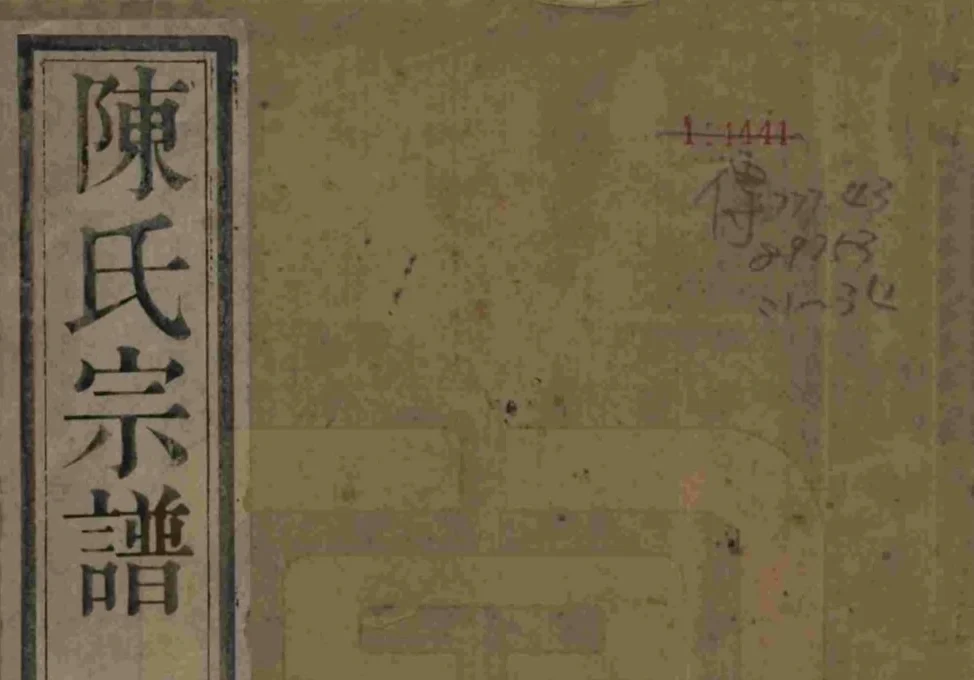 陳氏宗譜
1:1441
傳777.43
89753
:1-34